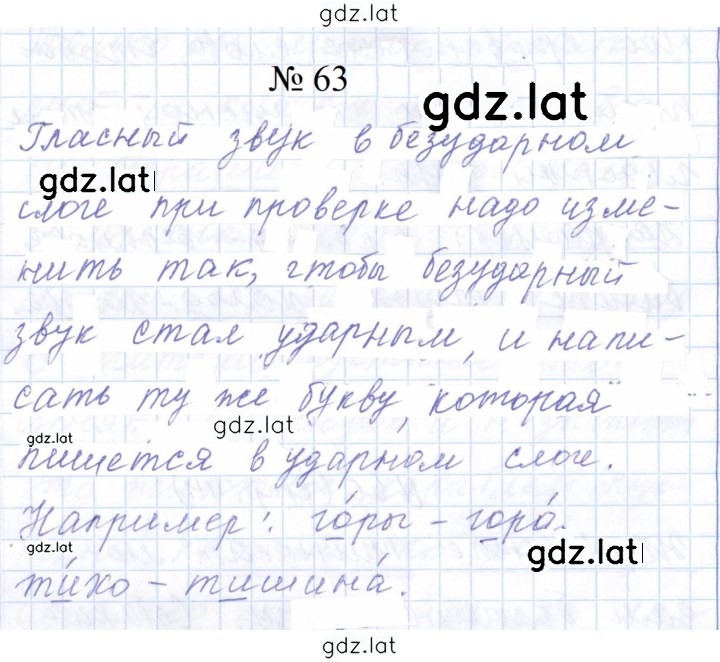 gdz.lat
№ 63
gdz.lat
Гласный звук в безударном
gdz.lat
слоге при проверке надо изме-
нить так, чтобы безударный
звук стал ударным, и напи-
сать ту же букву, которая
gdz.lat
gdz.lat
пишется в ударном слоге.
Например: го́ры – гора́.
gdz.lat
gdz.lat
ти́хо – тишина́.
gdz.lat